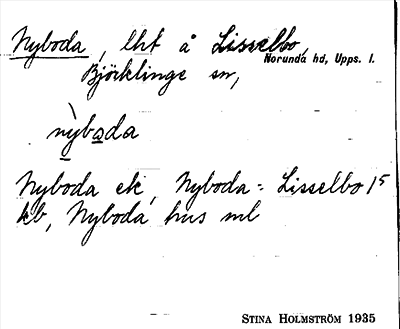 Nyboda, lht å Lisselbo,
Norunda hd, Upps. l.
Björklinge sn,
nỳbo̲da
Nyboda ek, Nyboda = Lisselbo 1⁵
kb, Nyboda hus ml
STINA HOLMSTRÖM 1935